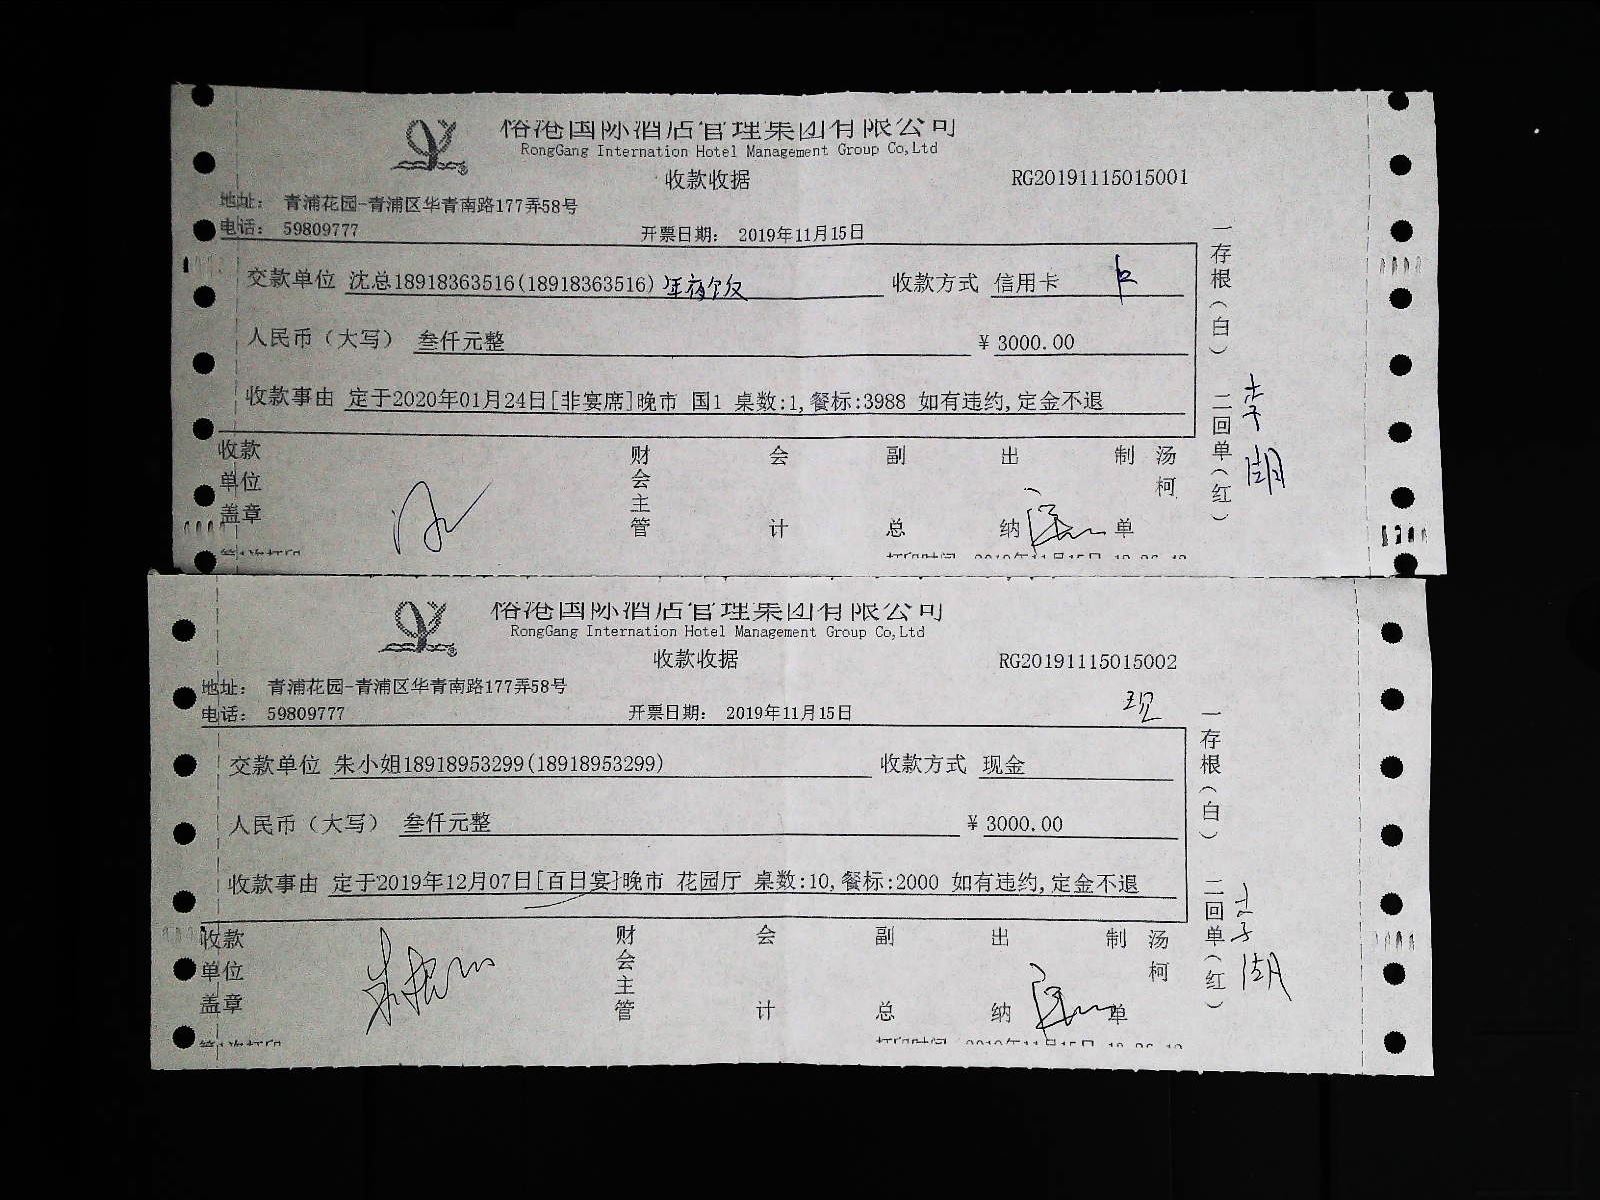 榕港国际酒店管理集团有限公司
RongGang Internation Hotel Management Group Co,Ltd
收款收据 RG20191115015001
地址： 青浦花园-青浦区华青南路177弄58号
电话： 59809777 开票日期： 2019年11月15日
交款单位 沈总18918363516(18918363516) 年夜饭 收款方式 信用卡 卡
人民币（大写） 叁仟元整 ¥ 3000.00
收款事由 定于2020年01月24日[非宴席]晚市 国1 桌数:1,餐标:3988 如有违约,定金不退
收款单位盖章 财会主管 会计 副总 出纳 制单 汤柯
一存根（白） 二回单（红）
第1次打印 打印时间 2019年11月15日
榕港国际酒店管理集团有限公司
RongGang Internation Hotel Management Group Co,Ltd
收款收据 RG20191115015002
地址： 青浦花园-青浦区华青南路177弄58号
现
电话： 59809777 开票日期： 2019年11月15日
交款单位 朱小姐18918953299(18918953299) 收款方式 现金
人民币（大写） 叁仟元整 ¥ 3000.00
收款事由 定于2019年12月07日[百日宴]晚市 花园厅 桌数:10,餐标:2000 如有违约,定金不退
收款单位盖章 财会主管 会计 副总 出纳 制单 汤柯
一存根（白） 二回单（红）
第1次打印 打印时间 2019年11月15日